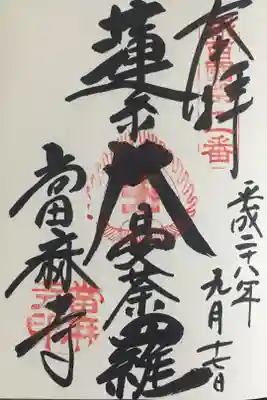 奉拝
蓮糸大曼荼羅
當麻寺
平成二十八年
九月十七日